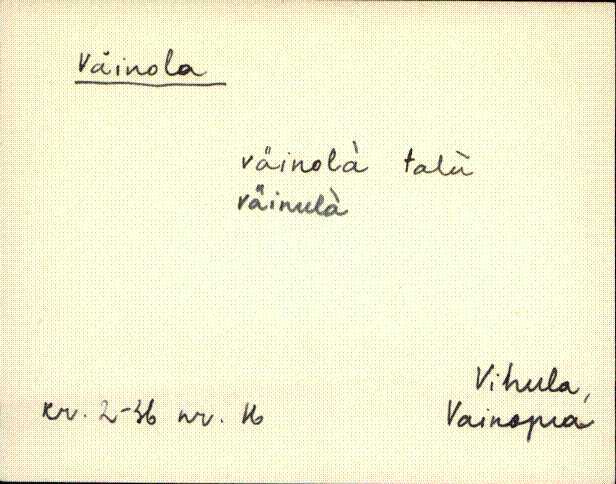 Väinola
väinolà talù
väinulà
Vihula,
kr. 2-36 nr. 16
Vainopea